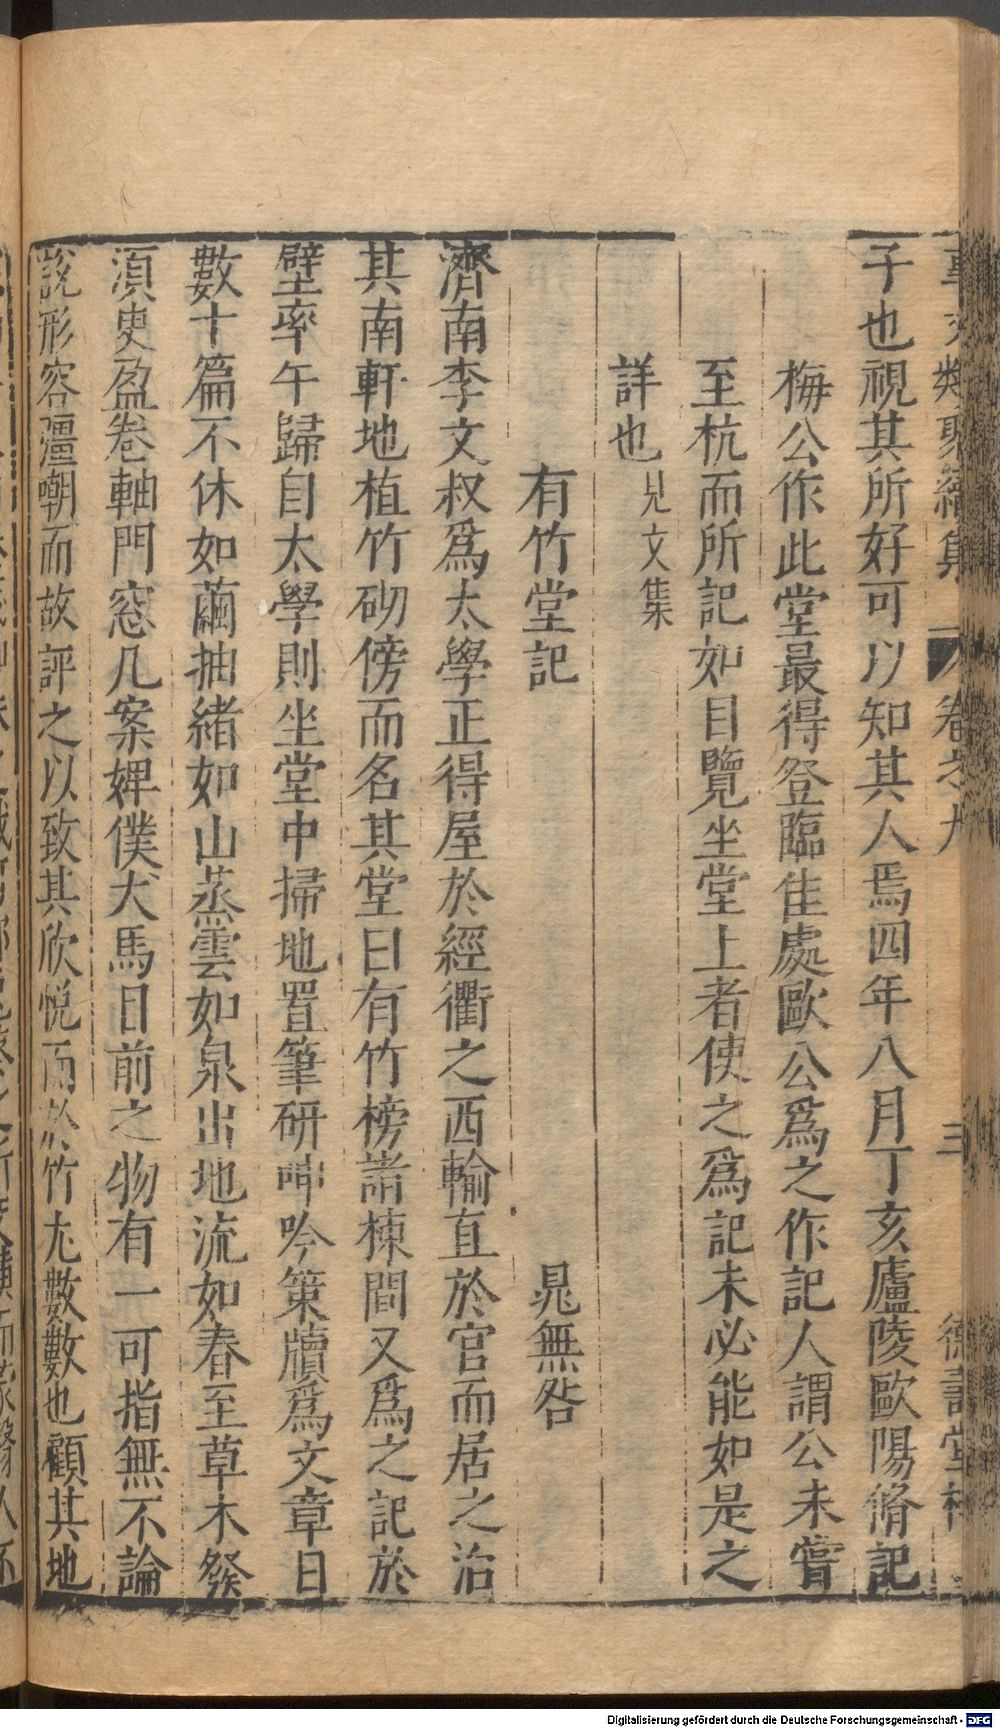 事文類聚續集 卷之九 三 德壽堂梓
子也視其所好可以知其人焉四年八月丁亥廬陵歐陽脩記
梅公作此堂最得登臨佳處歐公爲之作記人謂公未嘗
至杭而所記如目覽坐堂上者使之爲記未必能如是之
詳也見文集
有竹堂記 晁無咎
濟南李文叔爲太學正得屋於經衢之西輸直於官而居之治
其南軒地植竹砌傍而名其堂曰有竹榜諸棟間又爲之記於
壁率午歸自太學則坐堂中掃地置筆研呻吟策牘爲文章日
數十篇不休如繭抽緒如山蒸雲如泉出地流如春至草木發
湏臾盈卷軸門窓几案婢僕犬馬目前之物有一可指無不論
說形容彊嘲而故評之以致其欣悅而於竹尤數數也顧其地
Digitalisierung gefördert durch die Deutsche Forschungsgemeinschaft - DFG